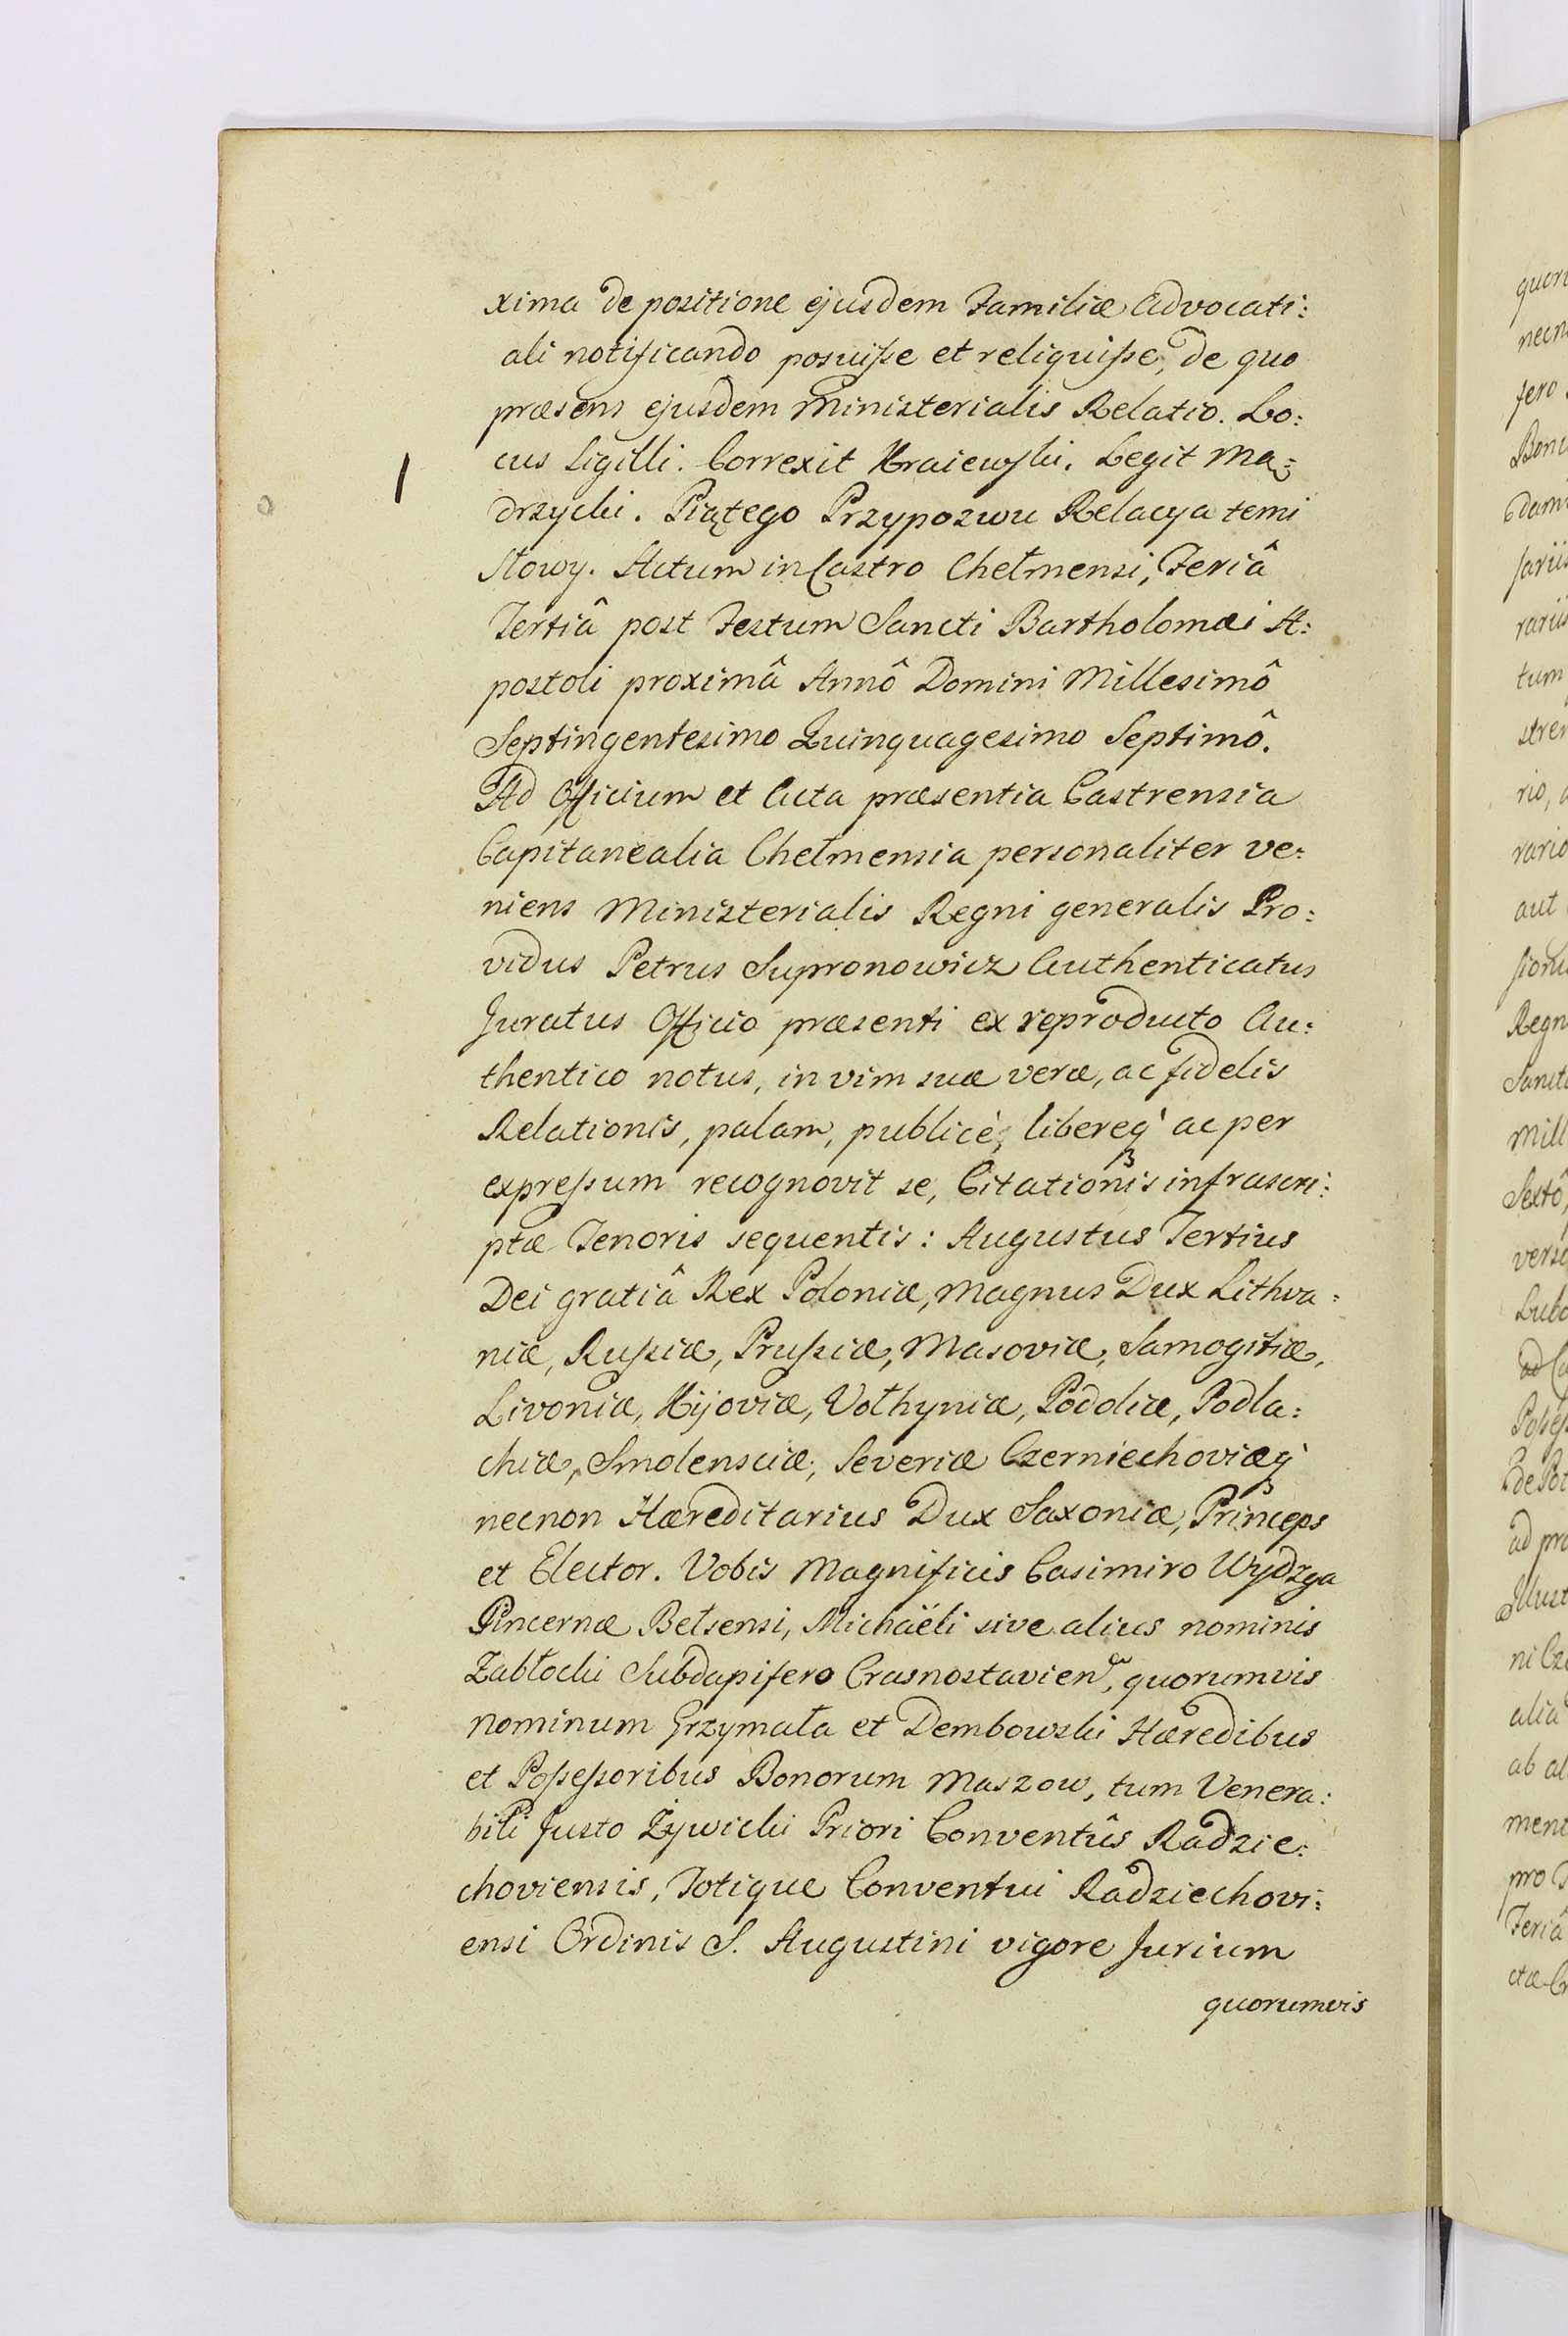 xima depositione ejusdem Familiæ Advocati:
ali notificando posuiſse et reliquiſse, de quo
præsens ejusdem Ministerialis Relatio. Lo:
cus Sigilli. Correxit Kraiewſki. Legit Mą:
drzycki. Piątego Przypozwu Relacya temi
Słowy. Actum in Castro Chełmensi, Feriâ
Tertiâ post Festum Sancti Bartholomæi A:
postoli proximâ Annô Domini Millesimô
Septingentesimo Quinquagesimo Septimô.
Ad Officium et Acta præsentia Castrensia
Capitanealia Chełmensia personaliter ve:
niens Ministerialis Regni generalis Pro:
vidus Petrus Supronowicz Authenticatus
Juratus Officio præsenti ex reproducto Au:
thentico notus, in vim suæ veræ, ac fidelis
Relationis, palam, publicè, libereq́ ac per
expreſsum recognovit se, Citationis infrascri:
ptæ Tenoris sequentis: Augustus Tertius
Dei gratiâ Rex Poloniæ, Magnus Dux Lithva:
niæ, Ruſsiæ, Pruſsiæ, Masoviæ, Samogitiæ,
Livoniæ, Kijoviæ, Vołhyniæ, Podoliæ, Podla:
chiæ, Smolensciæ, Severiæ Czerniechoviæq́
necnon Hæreditarius Dux Saxoniæ, Princeps
et Elector. Vobis Magnificis Casimiro Wydzga
Pincernæ Bełsensi, Michaëli sive alius nominis
Zabłocki Subdapifero Crasnostavien, quorumvis
nominum Grzymała et Dembowski Hæredibus
et Poſseſsoribus Bonorum Maszow, tum Venera:
bili Justo Żywicki Priori Conventûs Radzie:
choviensis, Totique Conventui Radziechovi:
ensi Ordinis S. Augustini vigore Jurium
quorumvis